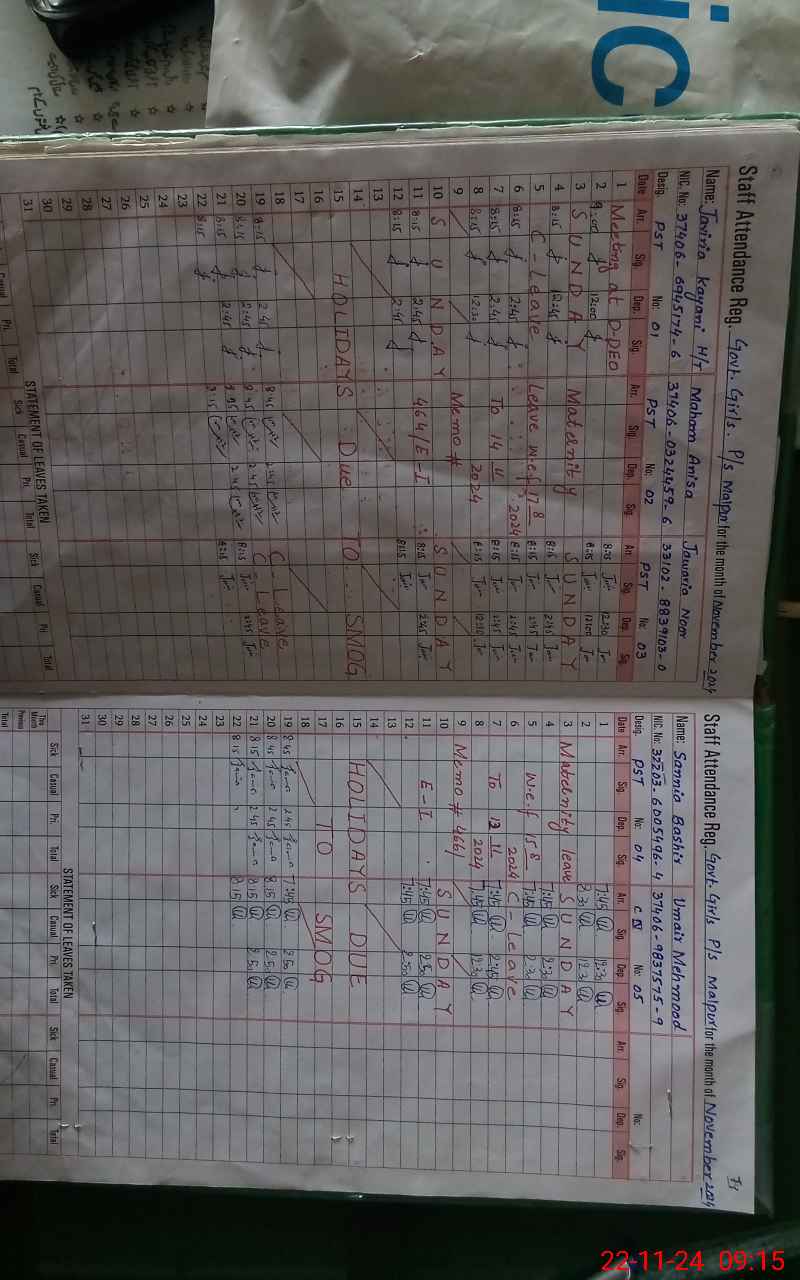 ic
Staff Attendance Reg. Govt. Girls. P/s Malpur for the month of November 2024
Name: Javiria Kayani H/T Maham Anisa Jawaria Noor
NIC. No: 37406-6945174-6 37406-0324459-6 33102-8839103-0
Desig. PST No: 01 PST No: 02 PST No: 03
Date Arr. Sig. Dep. Sig. Arr. Sig. Dep. Sig. Arr. Sig. Dep. Sig.
1 Meeting at D-DEO 8:15 12:30
2 9:00 12:00 8:15 12:00
3 SUNDAY Maternity SUNDAY
4 8:15 12:45 8:15 2:45
5 C-Leave Leave w.e.f 17 8 2024 8:15 2:45
6 8:15 2:45 8:15 2:45
7 8:15 2:45 To 14 11 2024 8:15 2:45
8 8:15 12:30 8:15 12:30
9 Memo #
10 SUNDAY SUNDAY
11 8:15 2:45 464/E-I 8:15 2:45
12 8:15 2:45 8:15
13
14
15 HOLIDAYS Due TO SMOG
16
17
18 C-Leave
19 8:15 2:45 8:45 2:45 C-Leave
20 8:15 2:45 8:45 2:45 8:15 2:45
21 8:15 2:45 2:45 8:15
22 8:15 8:15
23
24
25
26
27
28
29
30
31
STATEMENT OF LEAVES TAKEN
Casual Pri. Total Sick Casual Pri. Total Sick Casual Pri. Total
Staff Attendance Reg. Govt. Girls P/s Malpur for the month of November 2024
Name: Sannia Bashir Umair Mehmood
NIC. No: 32203-6005496-4 37406-9837575-9
Desig. PST No: 04 C IV No: 05 No:
Date Arr. Sig. Dep. Sig. Arr. Sig. Dep. Sig. Arr. Sig. Dep. Sig.
1 7:45 12:30
2 8:30 12:30
3 Maternity leave SUNDAY
4 7:45 2:30
5 w.e.f 15 8 2024 7:45 2:30
6 C-leave
7 To 13 11 2024 7:45 2:45
8 7:45 12:30
9 Memo # 466/
10 SUNDAY
11 E-I 7:45 2:50
12 7:45 2:50
13
14
15 HOLIDAYS DUE
16
17 TO SMOG
18
19 8:45 2:45 7:45 2:50
20 8:45 2:45 8:15 2:50
21 8:15 2:45 8:15 2:50
22 8:15 8:15
23
24
25
26
27
28
29
30
31
STATEMENT OF LEAVES TAKEN
Sick Casual Pri. Total Sick Casual Pri. Total Sick Casual Pri. Total
This Month
Previous
Total
22-11-24 09:15